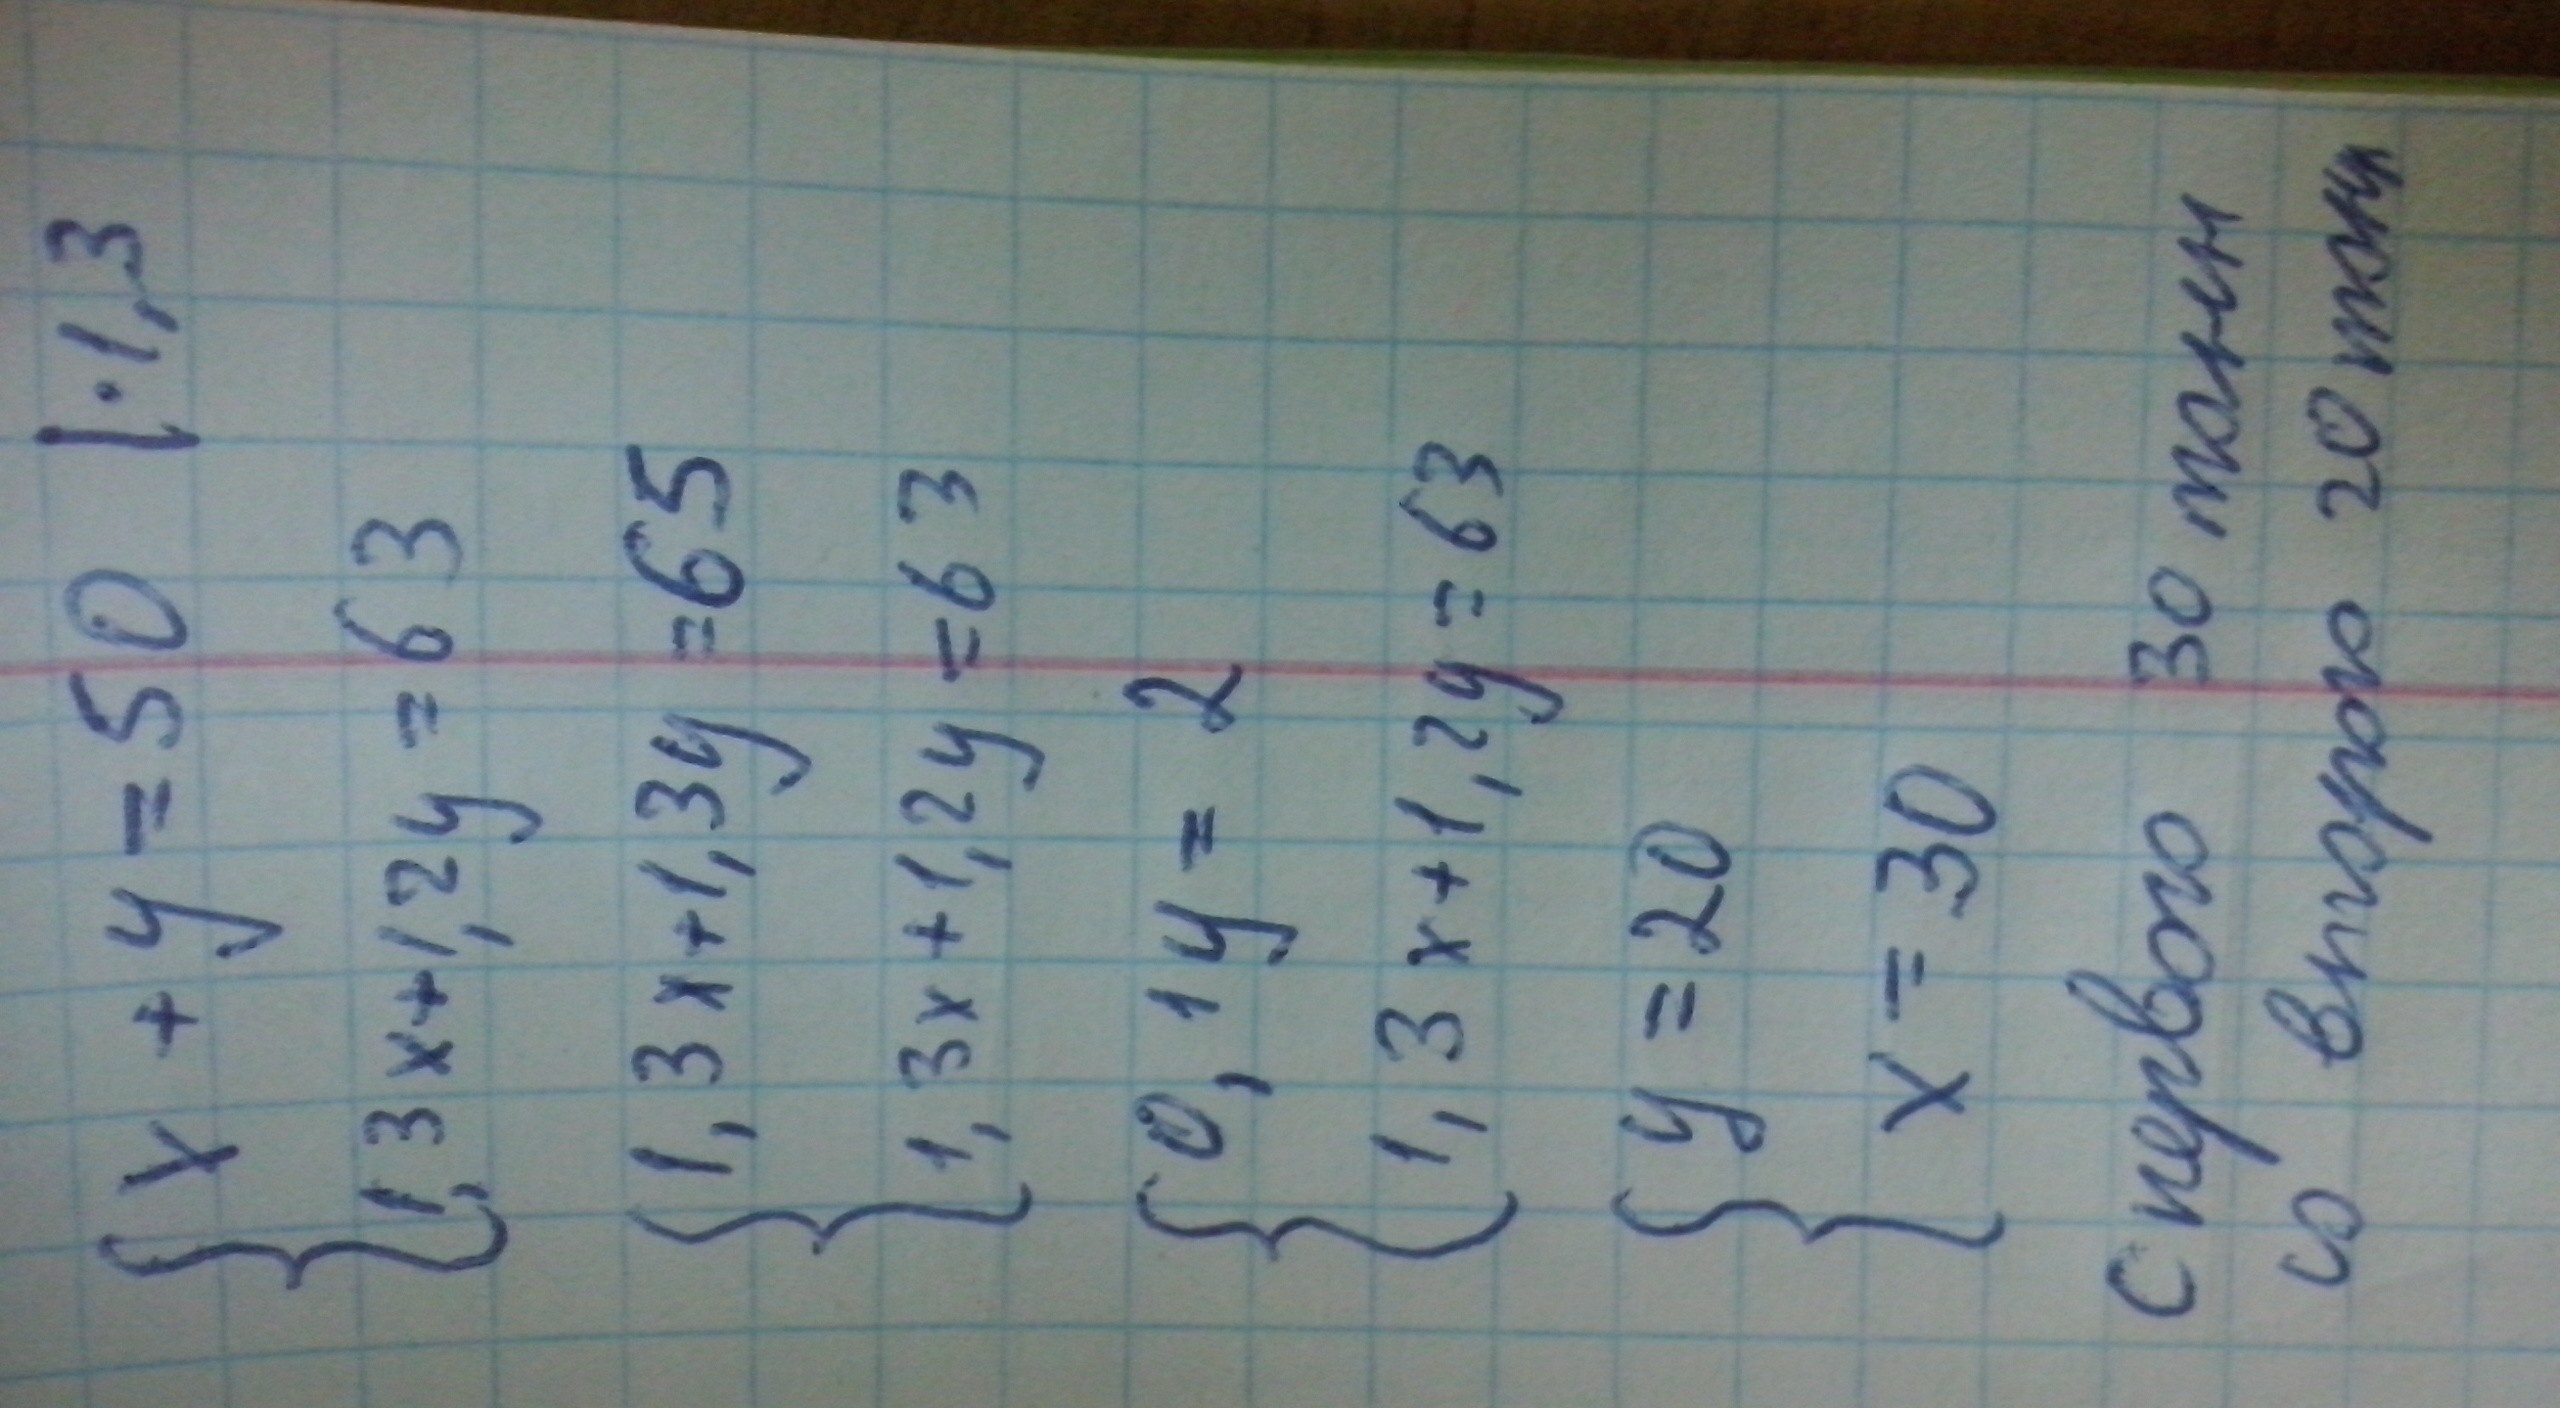 x + y = 50 | · 1,3
1,3x+1,2y = 63
1,3x+1,3y = 65
1,3x+1,2y = 63
0,1y = 2
1,3x+1,2y = 63
y = 20
x = 30
С первого 30 тонн
со второго 20 тонн